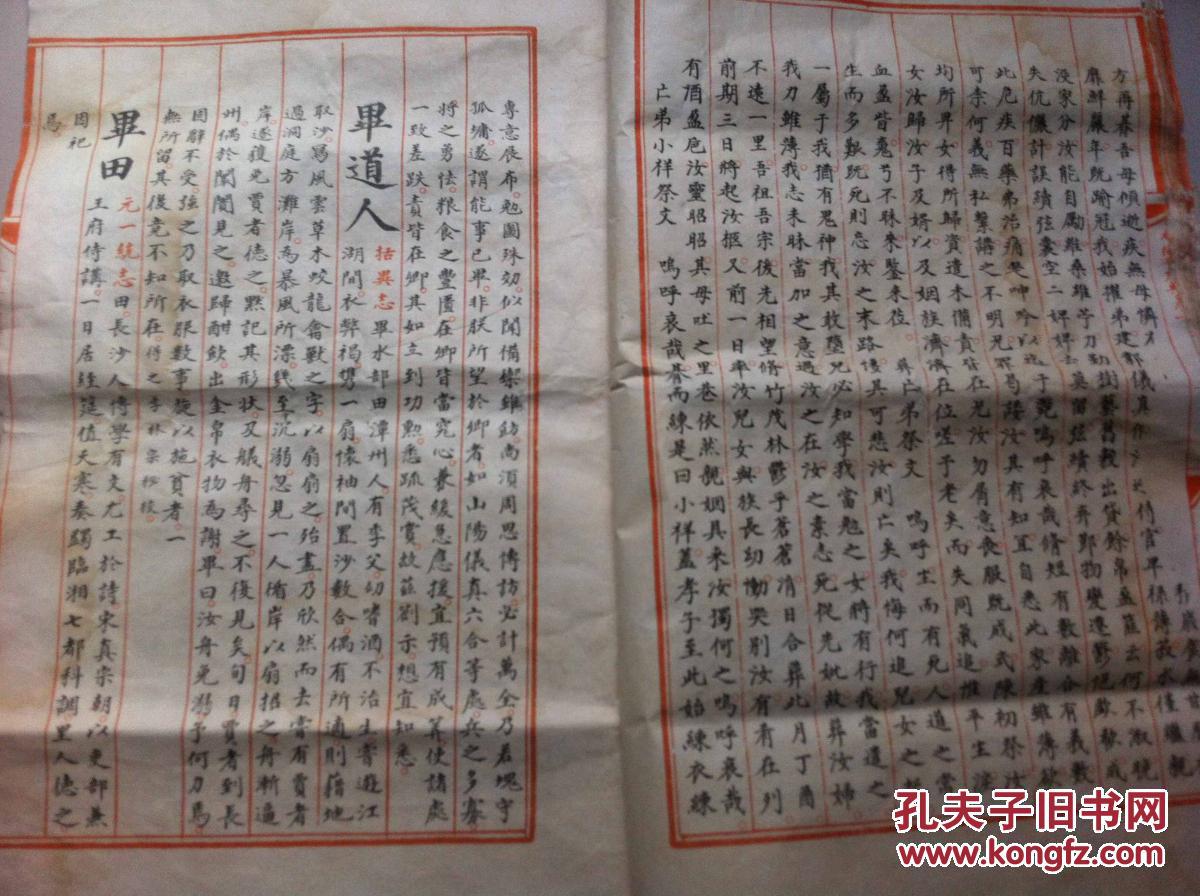 方再暮吾母傾逝疾無母憐
靡鮮嚴年既踰冠我始擢弟建鄴儀真作
淚家分汝能自勵雞桑雖苧刀勤樹藝舊穀出貸餘帛盈筐云何不淑
失伉儷計誤續弦囊空二婢婢去莫留弦續終弃鄞物變遷鬱挹
此危疾百藥弗治痛楚呻吟以迄于斃嗚呼哀哉脩短有數離合有義
可柰何義無私繫講之不明兄罪苟
均所畀女得所歸資遣未備責皆在兄汝勿屑意喪服既成式陳初祭
女汝歸汝子及婿以及姻族濟濟在位嗟予老矣而失同氣追惟平生
血盈眥䰟兮不昧來鑒來莅 葬亡弟祭文 嗚呼生而有死人道之常
生而多艱既死則忘汝之末路悽其可悲汝則亡矣我悔何追兒女之
一屬于我猶有鬼神我其敢墮兒必知學我當勉之女將有行我當遣之
我力雖薄我志未昧當加之意過汝之在汝之素志死從先妣故葬汝婦
不遠一里吾祖吾宗後先相望脩竹茂林鬱乎蒼蒼涓日合葬此月丁酉
前期三日將起汝柩又前一日率汝兒女與族長幼慟哭別汝有肴在列
有酒盈卮汝靈昭昭其母吐之里巷依然親姻具來汝獨何之嗚呼哀哉
亡弟小祥祭文 嗚呼哀哉朞而練是曰小祥蓋孝子至此始練衣練
專意展布勉圖珠効似聞備禦雖飭尚須周思博訪必計萬全乃若塊守
孤墉遂謂能事已畢非朕所望於卿者如山陽儀真六合等處兵之多寡
將之勇怯粮食之豐匱在卿皆當究心兼緩急應援宜預有成筭使諸處
一致差跌責皆在卿其如立到功勲悉疏茂賞故茲劄示想宜知悉
畢道人 括異志 畢水部田潭州人有季父幼嗜酒不治生嘗遊江
湖間衣弊褐攜一扇懷袖間置沙數合偶有所適則藉地
取沙寫風雲草木蛟龍禽獸之字以扇扇之殆盡乃欣然而去嘗有賈者
過洞庭方灘岸為暴風所漂幾至沉溺忽見一人循岸以扇招之舟漸逼
岸遂獲免賈者德之黙記其形狀及艤舟尋之不復見矣旬日賈者到長
州偶於闤闠見之邀歸酣飲出金帛衣物為謝畢曰汝舟免溺予何力焉
固辭不受強之乃取衣服數事旋以施貧者一
無所留其後竟不知所在得之李林宗秘校
畢田 元一統志 田長沙人博學有文尤工於詩宋真宗朝以吏部無
王府侍講一日居經筵值天寒奏蠲臨湘七都科調里人德之
因祀
焉
孔夫子旧书网
www.kongfz.com